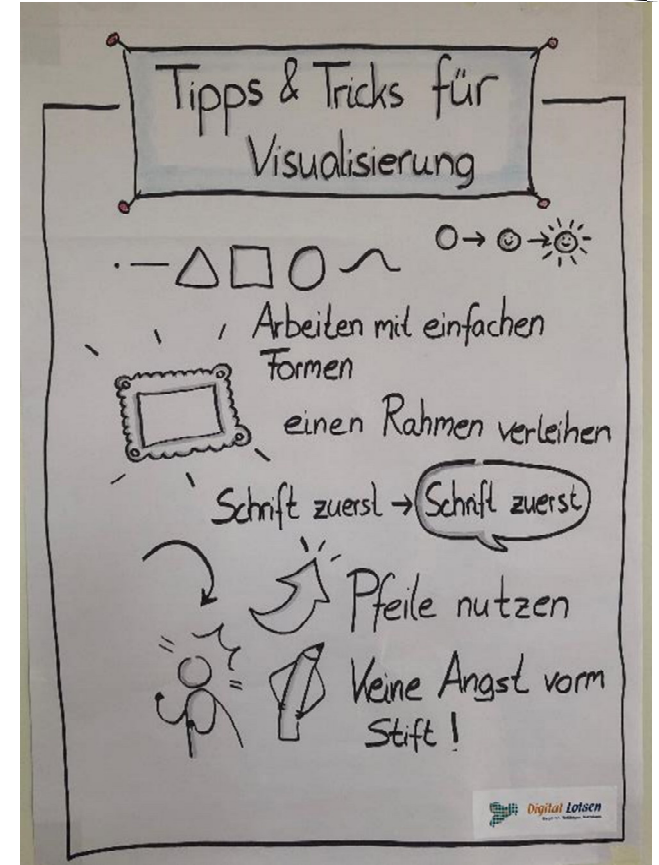 Tipps & Tricks für
Visualisierung
Arbeiten mit einfachen
Formen
einen Rahmen verleihen
Schrift zuerst → Schrift zuerst
Pfeile nutzen
Keine Angst vorm
Stift!
Digital Lotsen